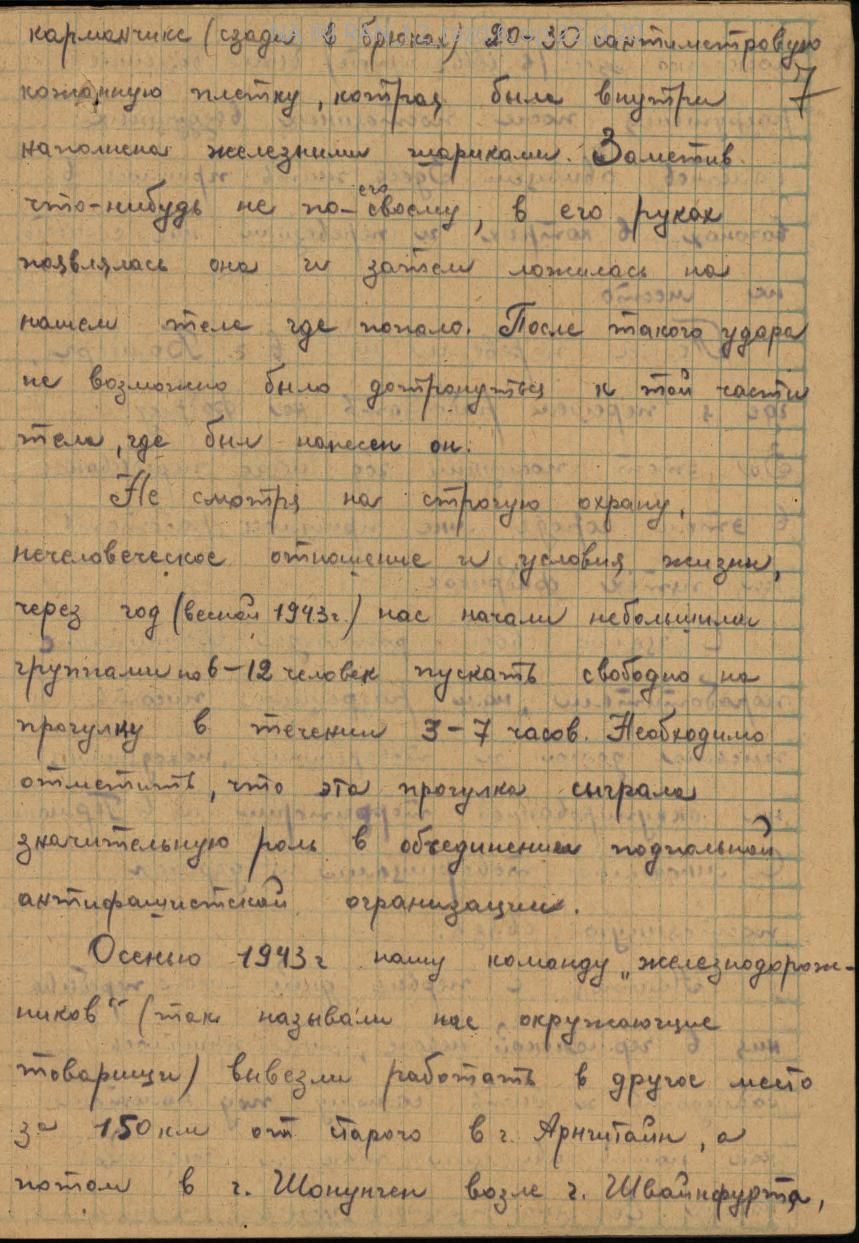 карманчике (сзади в брюках) 20-30 сантиметровую
кожанную плетку, котрая была внутри 7
наполнена железними шариками. Заметив
что-нибудь не по-его своему, в его руках
появлялась она и затем ложилась на
нашем теле где попало. После такого удара
не возможно было дотронуться к той части
тела, где был нанесен он.
Не смотря на строгую охрану,
нечеловеческое отношение и условия жизни,
через год (весной 1943г.) нас начали небольшими
группами по 6-12 человек пускать свободно на
прогулку в течении 3-7 часов. Необходимо
отметить, что эта прогулка сыграла
значительную роль в объединении подпольной
антифашистской огранизации.
Осенью 1943г нашу команду „железнодорож-
ников“ (так называли нас окружающие
товарищи) вывезли работать в другое место
за 150 км от старого в г. Арнштайн, а
потом в г. Шонунген возле г. Швайнфурта,